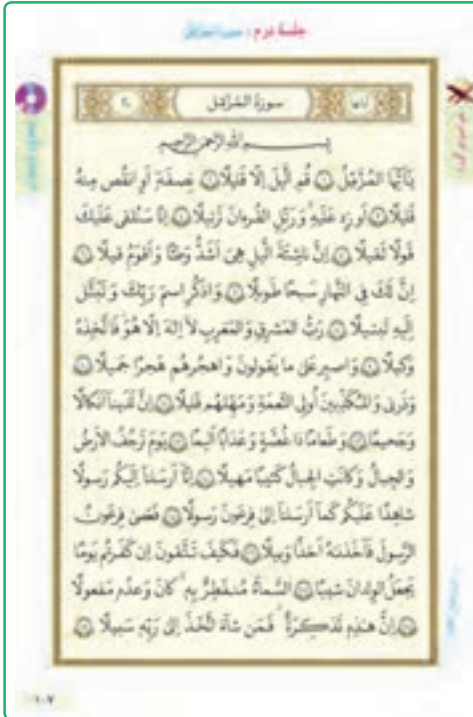 جلسة دوم :
آیاتها سورة المزمل ٢٠
بسم الله الرحمن الرحيم
يا أيها المزمل ١ قم الليل إلا قليلا ٢ نصفه أو انقص منه
قليلا ٣ أو زد عليه ورتل القرءان ترتيلا ٤ إنا سنلقي عليك
قولا ثقيلا ٥ إن ناشئة الليل هي أشد وطئا وأقوم قيلا ٦
إن لك في النهار سبحا طويلا ٧ واذكر اسم ربك وتبتل
إليه تبتيلا ٨ رب المشرق والمغرب لا إله إلا هو فاتخذه
وكيلا ٩ واصبر على ما يقولون واهجرهم هجرا جميلا ١٠
وذرني والمكذبين أولي النعمة ومهلهم قليلا ١١ إن لدينا أنكالا
وجحيما ١٢ وطعاما ذا غصة وعذابا أليما ١٣ يوم ترجف الأرض
والجبال وكانت الجبال كثيبا مهيلا ١٤ إنا أرسلنا إليكم رسولا
شاهدا عليكم كما أرسلنا إلى فرعون رسولا ١٥ فعصى فرعون
الرسول فأخذناه أخذا وبيلا ١٦ فكيف تتقون إن كفرتم يوما
يجعل الولدان شيبا ١٧ السماء منفطر به كان وعده مفعولا
١٨ إن هذه تذكرة فمن شاء اتخذ إلى ربه سبيلا ١٩
١٠٧